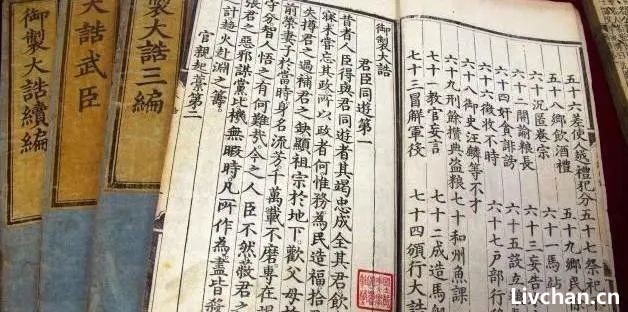 五十六差使人越禮犯分　五十七祭祀
五十八鄉飲酒禮　五十九鄉民除
六十沉匿卷宗　六十一馬站
六十二關諭糧長　六十三妄告
六十四奸貪誹謗　六十五設立
六十六徵收不時　六十七戶部行
六十八御史汪麟等不才
六十九刑餘攢典盜糧　七十和州魚課
七十一教官妄言　七十二成造馬船
七十三冒解軍役　七十四頒行大誥
御製大誥
君臣同遊第一
昔者人臣得與君同遊者其竭忠成全其君飲
寐未嘗忘其政所以政者何惟務為民造福拾
失撙君之過補君之缺顯祖宗於地下歡父母於
前榮妻子於當時身名流芳千萬載不磨專在竭
守分智人悟之有何難哉今之人臣不然蔽君之
張君之惡邪謀黨比機無暇時凡所作為盡皆殺
計趨火赴淵之籌
官親起藁第二
御製大誥三編
大誥武臣
御製大誥續編
Livchan.cn